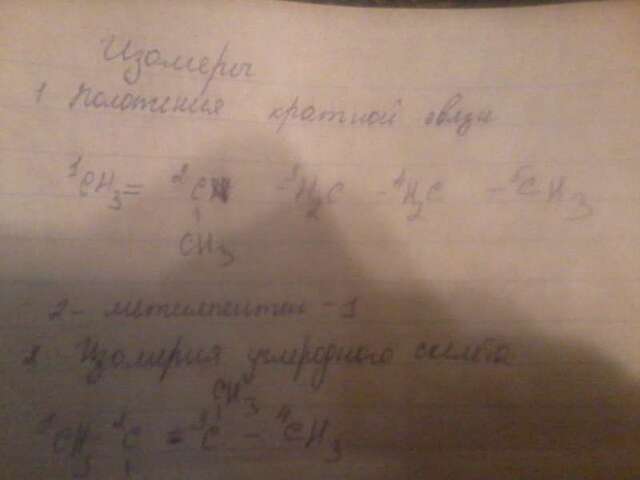 Изомеры
1 Положения кратной связи
¹CH₃= ²C - ³H₂C - ⁴H₂C - ⁵CH₃
CH₃
2- метилпентен -1
2 Изомерия углеродного скелета
CH₃
¹CH₃ - ²C = ³C - ⁴CH₃